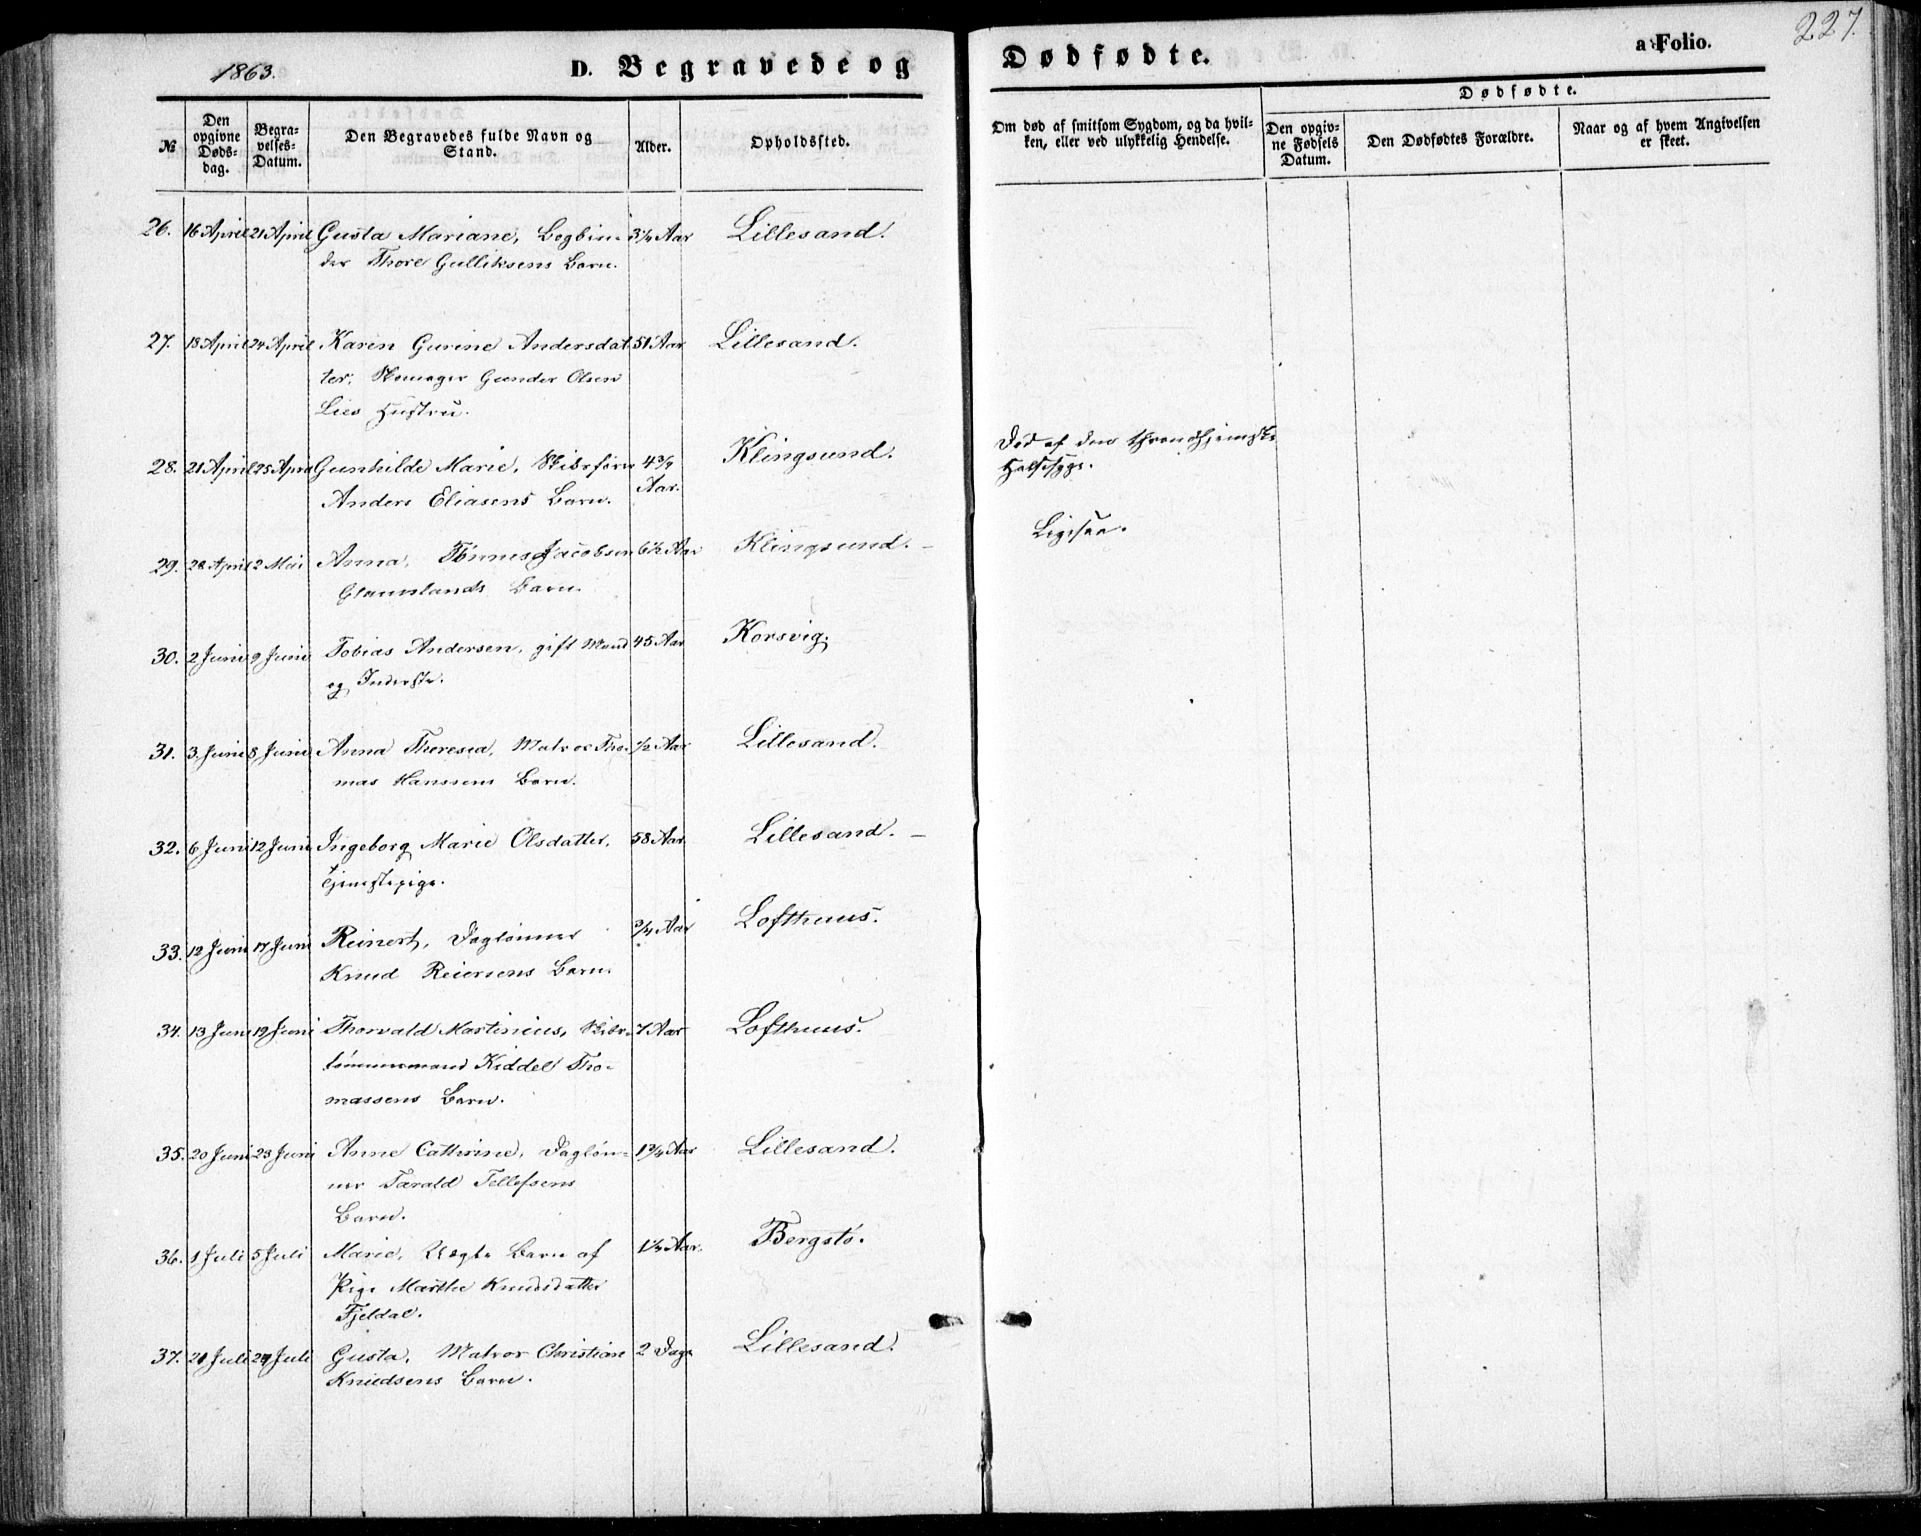 1863.
D. Begravede og Dødfødte.
a Folio.
227.
№
Den opgivne Døds-dag.
Begra-velses-Datum.
Den Begravedes fulde Navn og Stand.
Alder.
Opholdssted.
Om død af smitsom Sygdom, og da hvil-ken, eller ved ulykkelig Hendelse.
Dødfødte.
Den opgiv-ne Fødsels Datum.
Den Dødfødtes Forældre.
Naar og af hvem Angivelsen er skeet.
26. 16 April 21 April Gusta Mariane, Bogbin- 3¼ Aar Lillesand.
der Thore Gulliksens Barn.
27. 18 April 24 April Karen Gurine Andersdat- 51 Aar Lillesand.
ter, Skomager Gunder Olsen
Lies Hustru.
28. 21 April 25 April Gunhilde Marie, Skibsfører 4¾ Aar. Klingsund. Død af den throndhjemske
Anders Eliasens Barn. Halssyge.
29. 28 April 2 Mai Anna, Tønnes Jacobsen 6½ Aar Klingsund. Ligesaa.
Glamslands Barn.
30. 2 Juni 9 Juni Tobias Andersen, gift Mand 45 Aar Korsvig.
og Inderste.
31. 3 Juni 8 Juni Anna Theresia, Matros Tho- ½ Aar Lillesand.
mas Hanssens Barn.
32. 6 Juni 12 Juni Ingeborg Marie Olsdatter, 58 Aar Lillesand.
Tjenestepige.
33. 12 Juni 17 Juni Reinert, Daglønner ¾ Aar Lofthuus.
Knud Reiersens Barn.
34. 13 Juni 19 Juni Thorvald Martinius, Skibs- 7 Aar Lofthuus.
tømmermand Kiddel Tho-
massens Barn.
35. 20 Juni 23 Juni Anne Cathrine, Dagløn- 1¾ Aar Lillesand.
ner Tarald Tellefsens
Barn.
36. 1 Juli 5 Juli Marie, Uægte Barn af 1¼ Aar. Bergstø.
Pige Marthe Knudsdatter
Fjeldal.
37. 21 Juli 24 Juli Gusta, Matros Christian 2 Dage Lillesand.
Knudsens Barn.